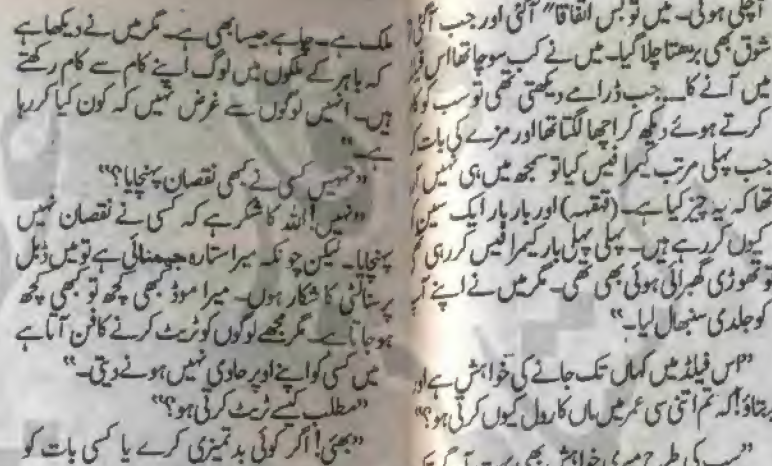 آچلی ہوئی۔ میں تو بس اتفاقا" آگئی اور جب آگئی
شوق بھی بڑھتا چلا گیا۔ میں نے کب سوچا تھا اس
میں آنے کا۔ جب ڈرامے دیکھتی تھی تو سب کو
کرتے ہوئے دیکھ کر اچھا لگتا تھا اور مزے کی بات
جب پہلی مرتب کیمرا فیس کیا تو سمجھ میں ہی نہیں
تھا کہ یہ چیز کیا ہے۔ (قہقہہ) اور بار بار ایک سین
کیوں کررہے ہیں۔ پہلی پہل بار کیمرا فیس کررہی
تو تھوڑی گھبرائی ہوئی بھی تھی۔ مگر میں نے اپنے
کو جلدی سنبھال لیا۔"
"اس فیلڈ میں کہاں تک جانے کی خواہش ہے اور
بتاؤ! کہ تم اتنی سی عمر میں ماں کا رول کیوں کرتی ہو؟"
"سب کی طرح میری خواہش بھی
ملک ہے۔ چاہے جیسا بھی ہے۔ مگر میں نے دیکھا ہے
کہ باہر کے ملکوں میں لوگ اپنے کام سے کام رکھتے
ہیں۔ انہیں لوگوں سے غرض نہیں کہ کون کیا کررہا
ہے۔"
"تمہیں کسی نے کبھی نقصان پہنچایا؟"
"نہیں! اللہ کا شکر ہے کہ کسی نے نقصان نہیں
پہنچایا۔ لیکن چونکہ میرا ستارہ جیمنائی ہے تو میں ڈبل
پرسنالٹی کا شکار ہوں۔ میرا موڈ کبھی کچھ تو کبھی کچھ
ہوجاتا ہے۔ مگر مجھے لوگوں کو ٹریٹ کرنے کا فن آتا ہے
میں کسی کو اپنے اوپر حاوی نہیں ہونے دیتی۔"
"مطلب کیسے ٹریٹ کرتی ہو؟"
"بھئی! اگر کوئی بدتمیزی کرے یا کسی بات کو